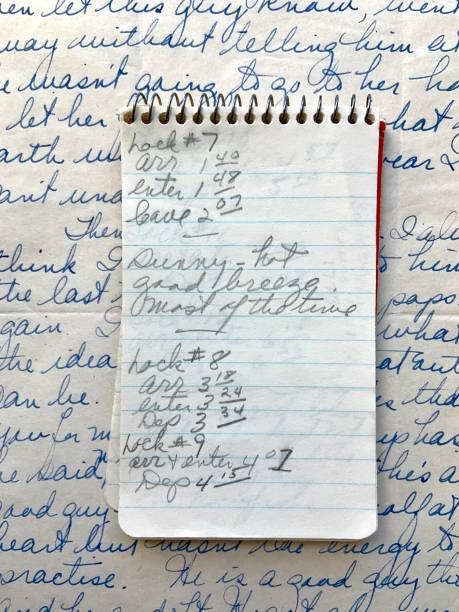 let this guy know, went
way without telling him
wasn't going to go to her
let her
Lock #7
arr 1 40
enter 1 48
leave 2 07
Sunny - hot
good breeze
most of the time
Lock #8
arr 3 18
enter 3 24
Dep 3 34
Lock #9
arr + enter 4 07
Dep 4 15
Then
think I to him
the last
gain I what
the idea
an be.
you for has
he said, he's a
good guy
heart but hasn't the energy to
practise. He is a good guy